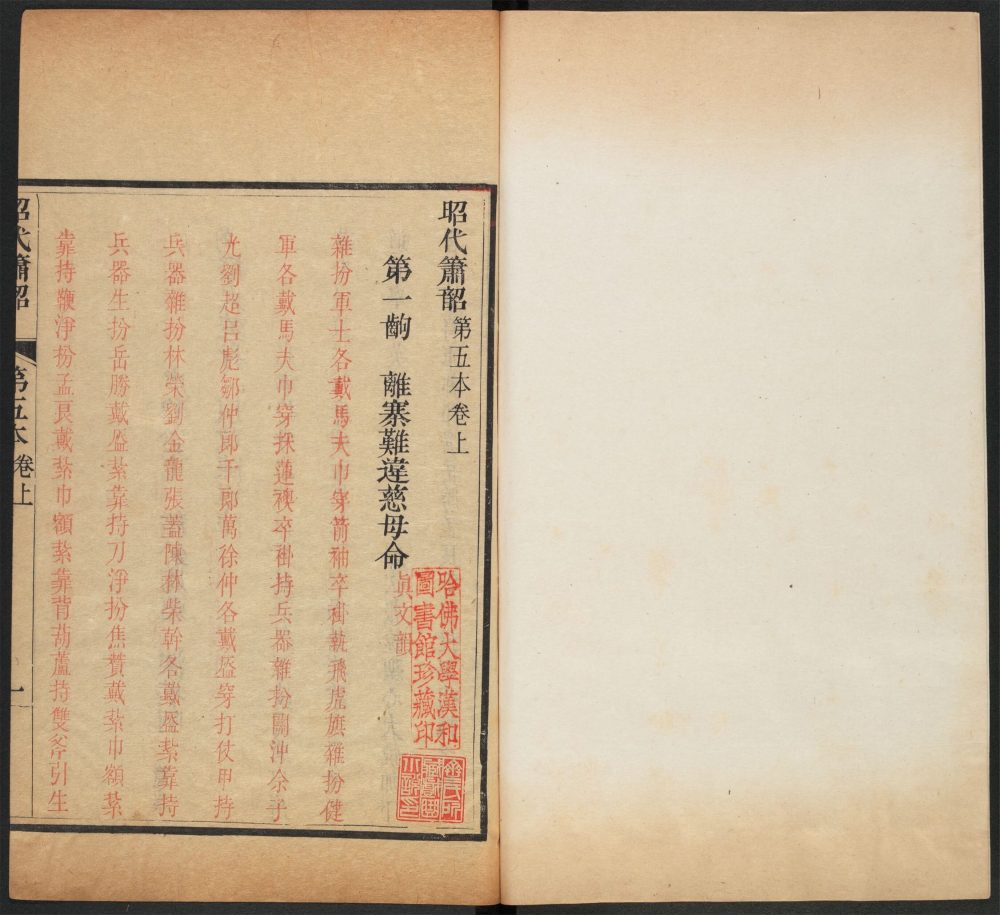 昭代簫韶 第五本卷上
第一齣 離寨難違慈母命
真文韻
雜扮軍士各戴馬夫巾穿箭袖卒褂執飛虎旗雜扮健
軍各戴馬夫巾穿採蓮襖卒褂持兵器雜扮關沖余子
光劉超呂彪鄒仲郎千郎萬徐仲各戴盔穿打仗甲持
兵器雜扮林榮劉金龍張蓋陳林柴幹各戴盔紮靠持
兵器生扮岳勝戴盔紮靠持刀淨扮焦贊戴紮巾額紮
靠持鞭淨扮孟良戴紮巾額紮靠背葫蘆持雙斧引生
昭代簫韶 第五本 卷上 一
哈佛大學漢和
圖書館珍藏印